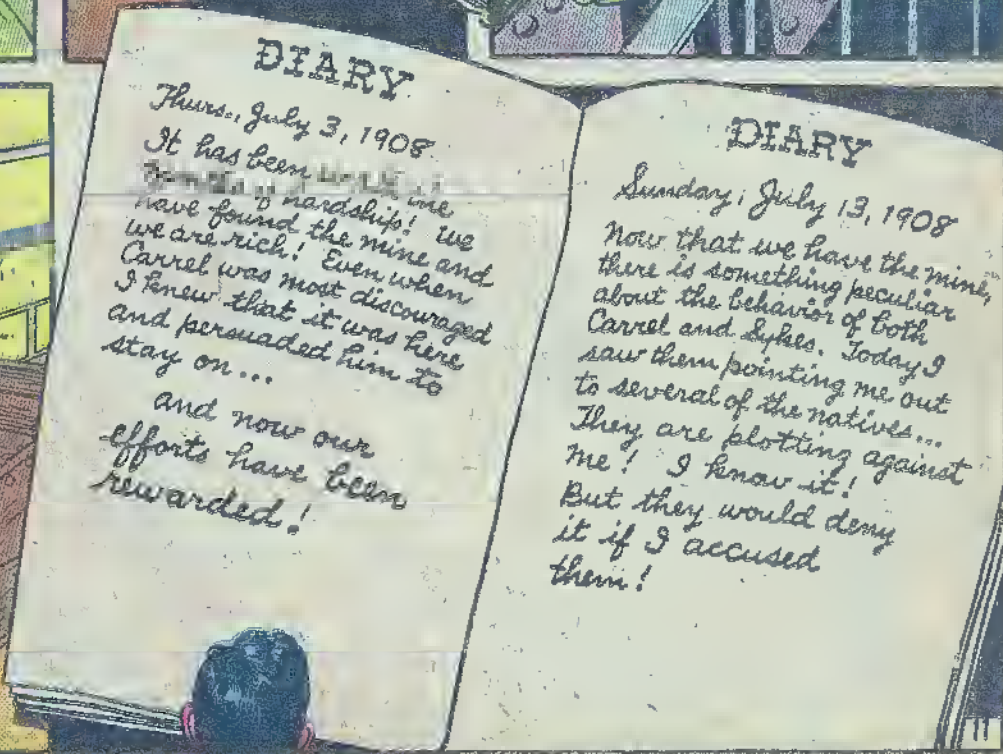 DIARY
Thurs., July 3, 1908
It has been
hardship! We
have found the mine and
we are rich! Even when
Carrel was most discouraged
I knew that it was here
and persuaded him to
stay on...
and now our
efforts have been
rewarded!
DIARY
Sunday, July 13, 1908
Now that we have the mine,
there is something peculiar
about the behavior of both
Carrel and Sykes. Today I
saw them pointing me out
to several of the natives...
They are plotting against
me! I know it!
But they would deny
it if I accused
them!
11